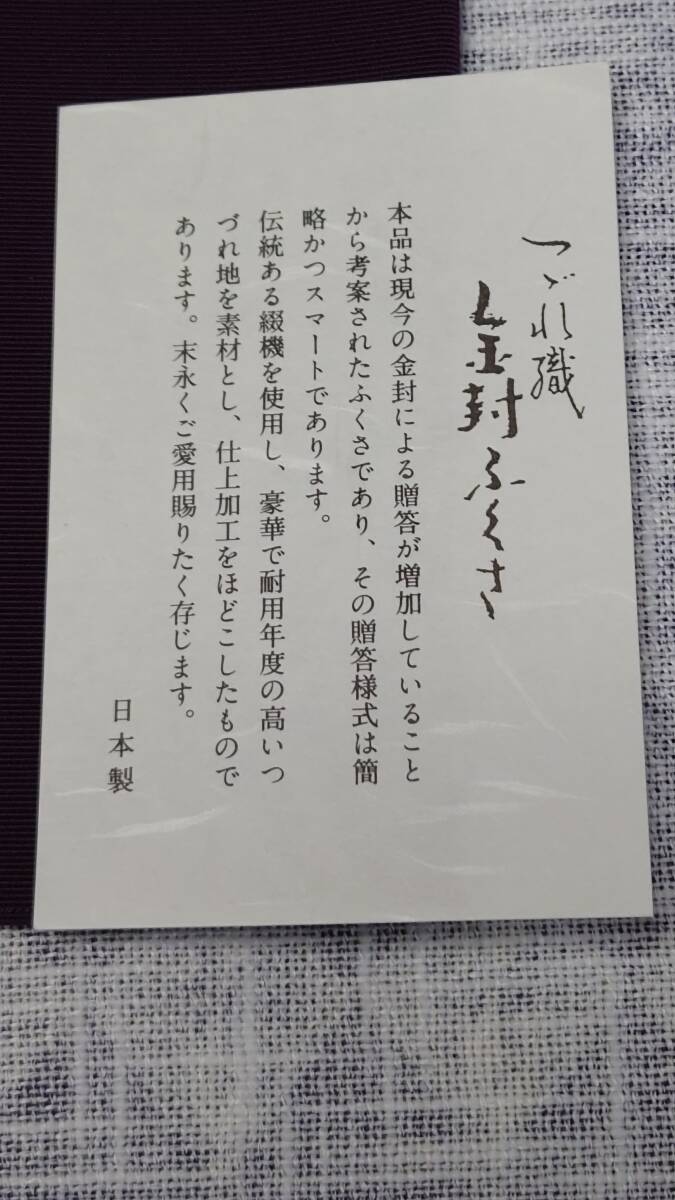 つづれ織
金封ふくさ
本品は現今の金封による贈答が増加していること
から考案されたふくさであり、その贈答様式は簡
略かつスマートであります。
伝統ある綴機を使用し、豪華で耐用年度の高いつ
づれ地を素材とし、仕上加工をほどこしたもので
あります。末永くご愛用賜りたく存じます。
日本製